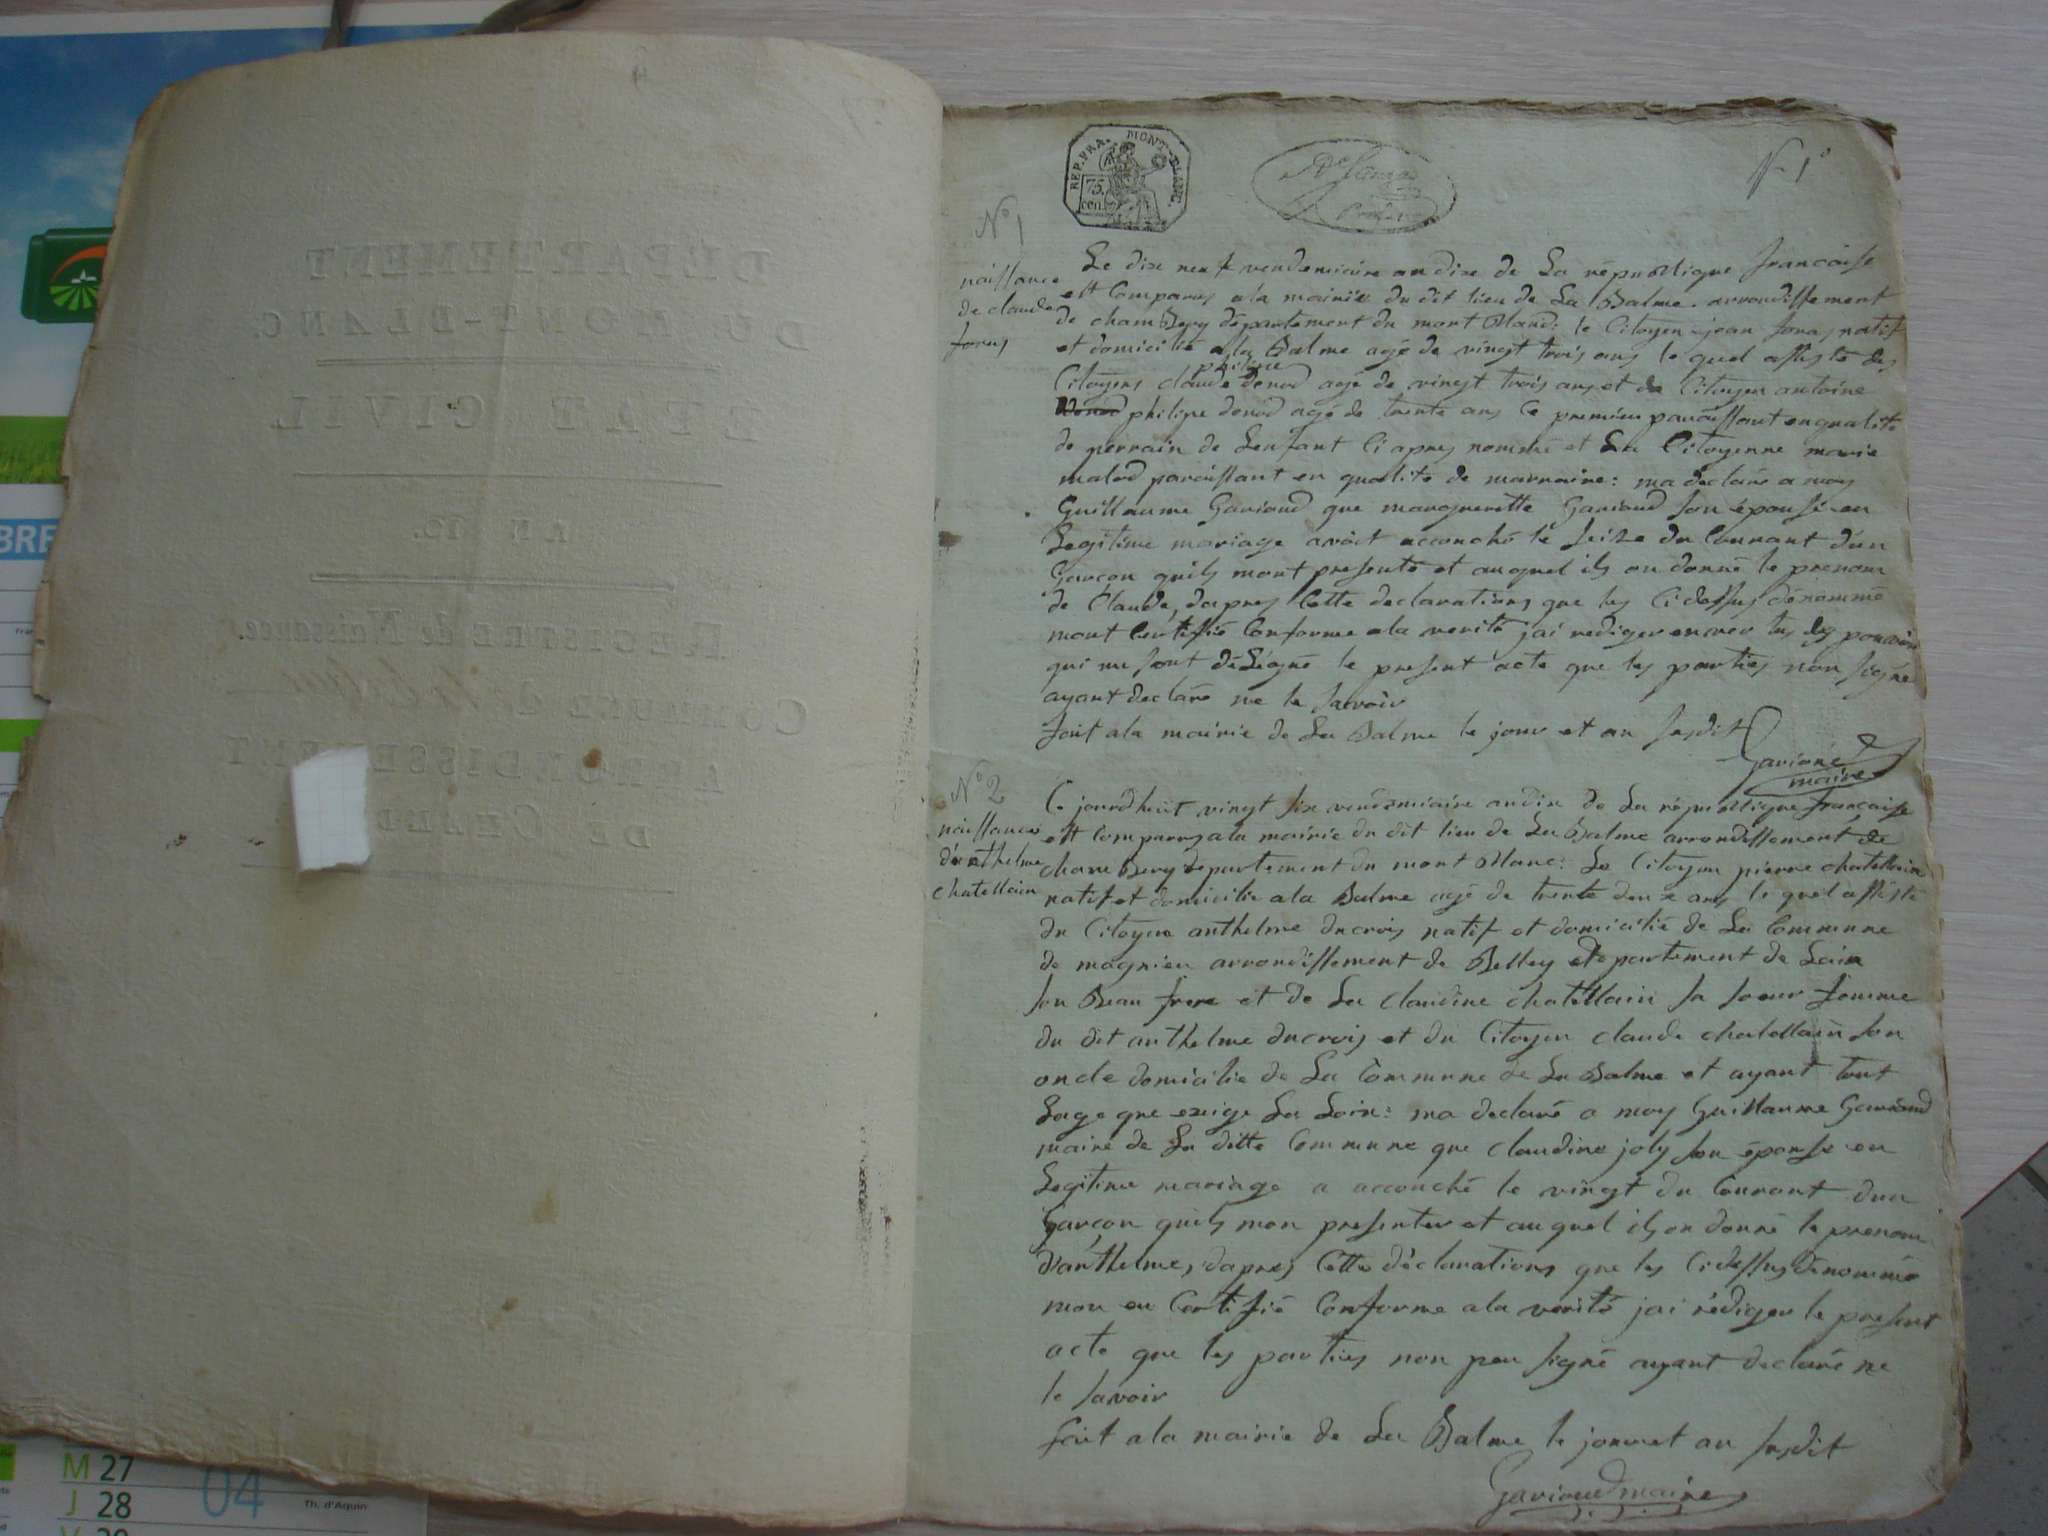 DÉPARTEMENT
DU MONT-BLANC.
ETAT CIVIL
AN 10.
REGISTRE de Naissance.
COMMUNE de
ARRONDISSEMENT
DE
BRE
M 27
J 28
04
Th. d'Aquin
REP. FRA. MONT-BLANC.
75
cen.
N° 1
N° 1
naissance
de claude
foras
Le dix neuf vendemiaire an dix de La république francaise
est Comparus a la mairie du dit lieu de La Balme arrondissement
de chambery département du mont Blanc: le Citoyen jean foras natif
et domicilié a la Balme agé de vingt trois ans le quel assisté des
philipe
Citoyens claude donod agé de vingt trois ans et du Citoyen antoine
philipe donod agé de trente ans Le premier paraissant en qualité
de perrain de Lenfant Ci apres nommé et La Citoyenne marie
malod paraissant en qualité de marraine: ma declaré a moy
Guillaume Gavioud que marguerette Gavioud son épouse en
Legitime mariage avoit accouché le seize du Courant dun
Garcon quils mont presenté et auquel ils on donné le prenom
de Claude, dapres Cette declarations que les Cidessus dénommé
mont Certifié Conforme a la verité jai rediger en vertus des pouvoirs
qui me sont délégué le present acte que les parties non signé
ayant declaré ne le savoir
fait a la mairie de La Balme le jour et an susdit
Gavioud
maire
N° 2
naissance
d'anthelme
chatellain
Ce jourdhuit vingt six vendemiaire an dix de La république francaise
est Comparus a la mairie du dit lieu de La Balme arrondissement de
chambery departement du mont Blanc: Le Citoyen pierre chatellain
natif et domicilie a la Balme agé de trente deux ans le quel assisté
du Citoyen anthelme ducrois natif et domicilié de La Commune
de magnieu arrondissement de Belley departement de Lain
son Beau frere et de La claudine chatellain sa soeur femme
du dit anthelme ducrois et du Citoyen claude chatellain son
oncle domicilie de La Commune de La Balme et ayant tout
Lage que exige La Loix: ma declaré a moy Guillaume Gavioud
maire de La ditte Commune que claudine joly son épouse en
Legitime mariage a accouché le vingt du Courant dun
Garçon quils mon presenter et auquel ils on donné le prenom
d'anthelme, dapres Cette déclarations que les Cidessus dénommé
mon en Certifié Conforme a la verité jai rédiger le present
acte que les parties non peu signé ayant declaré ne
le savoir
fait a la mairie de La Balme le jour et an susdit
Gavioud maire